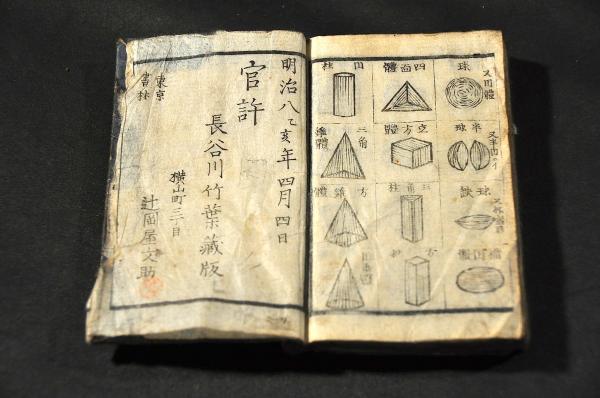 球
又円體
半球
楕円體
四面體
立方體
三角柱
方柱
円柱
三角錐體
方錐體
明治八乙亥年四月四日
官許
長谷川竹葉藏版
横山町三丁目
辻岡屋文助
東京
書林